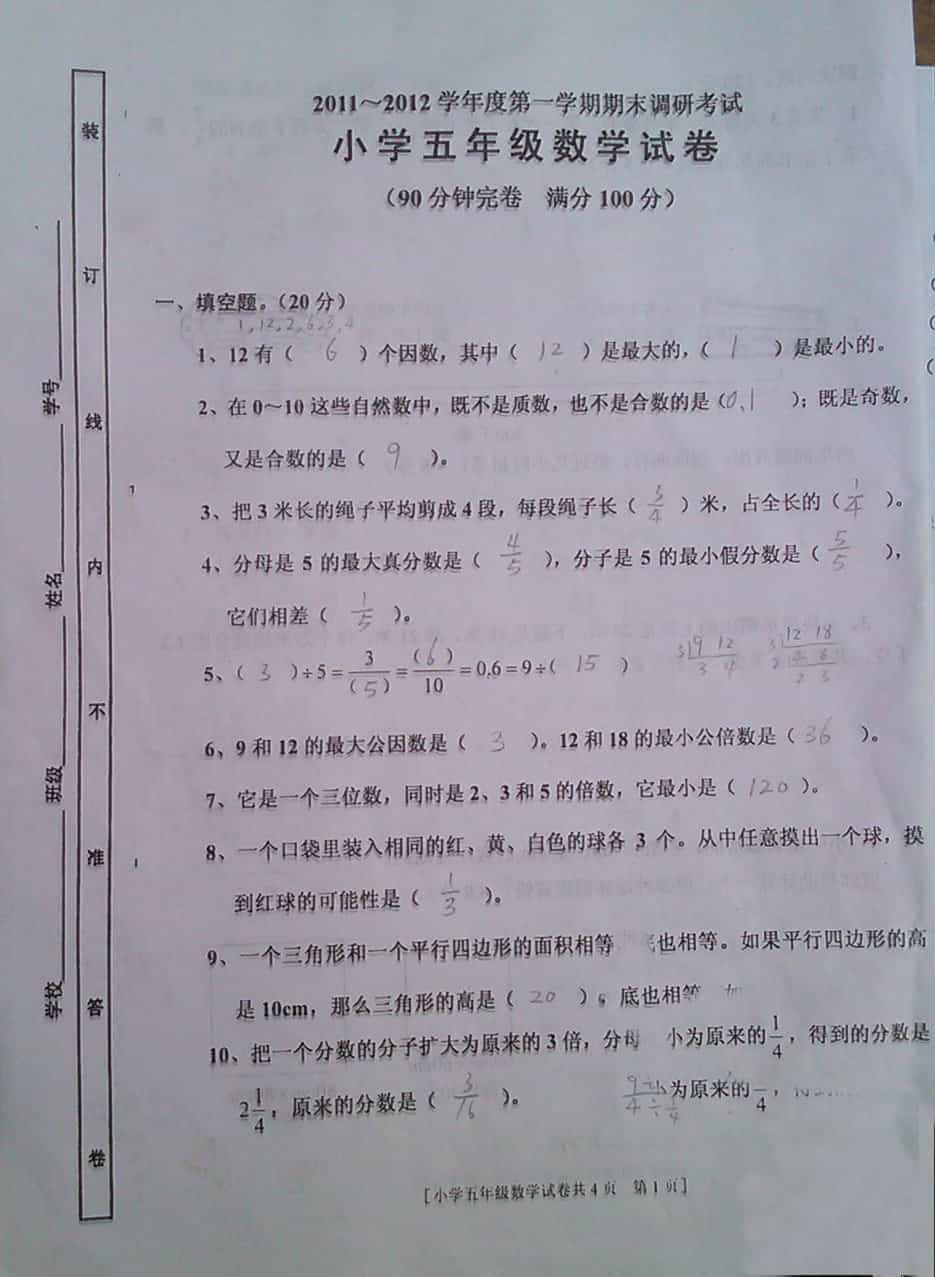 2011～2012 学年度第一学期期末调研考试
小学五年级数学试卷
（90 分钟完卷　满分 100 分）
装 订 线 内 不 准 答 卷
学校 班级 姓名 学号
一、填空题。（20 分）
1,12,2,6,3,4
1、12 有（ 6 ）个因数，其中（ 12 ）是最大的，（ 1 ）是最小的。
2、在 0～10 这些自然数中，既不是质数，也不是合数的是（0、1 ）；既是奇数，
又是合数的是（ 9 ）。
3、把 3 米长的绳子平均剪成 4 段，每段绳子长（ 3/4 ）米，占全长的（ 1/4 ）。
4、分母是 5 的最大真分数是（ 4/5 ），分子是 5 的最小假分数是（ 5/5 ），
它们相差（ 1/5 ）。
5、（ 3 ）÷5 = 3/(5) = (6)/10 = 0.6 = 9÷（ 15 ）
3 9 12
3 4
3 12 18
2 4 6
2 3
6、9 和 12 的最大公因数是（ 3 ）。12 和 18 的最小公倍数是（ 36 ）。
7、它是一个三位数，同时是 2、3 和 5 的倍数，它最小是（ 120 ）。
8、一个口袋里装入相同的红、黄、白色的球各 3 个。从中任意摸出一个球，摸
到红球的可能性是（ 1/3 ）。
9、一个三角形和一个平行四边形的面积相等 也相等。如果平行四边形的高
是 10cm，那么三角形的高是（ 20 ）。底也相等
10、把一个分数的分子扩大为原来的 3 倍，分母 小为原来的 1/4，得到的分数是
2 1/4，原来的分数是（ 3/16 ）。 小为原来的 4，
[小学五年级数学试卷共 4 页　第 1 页]